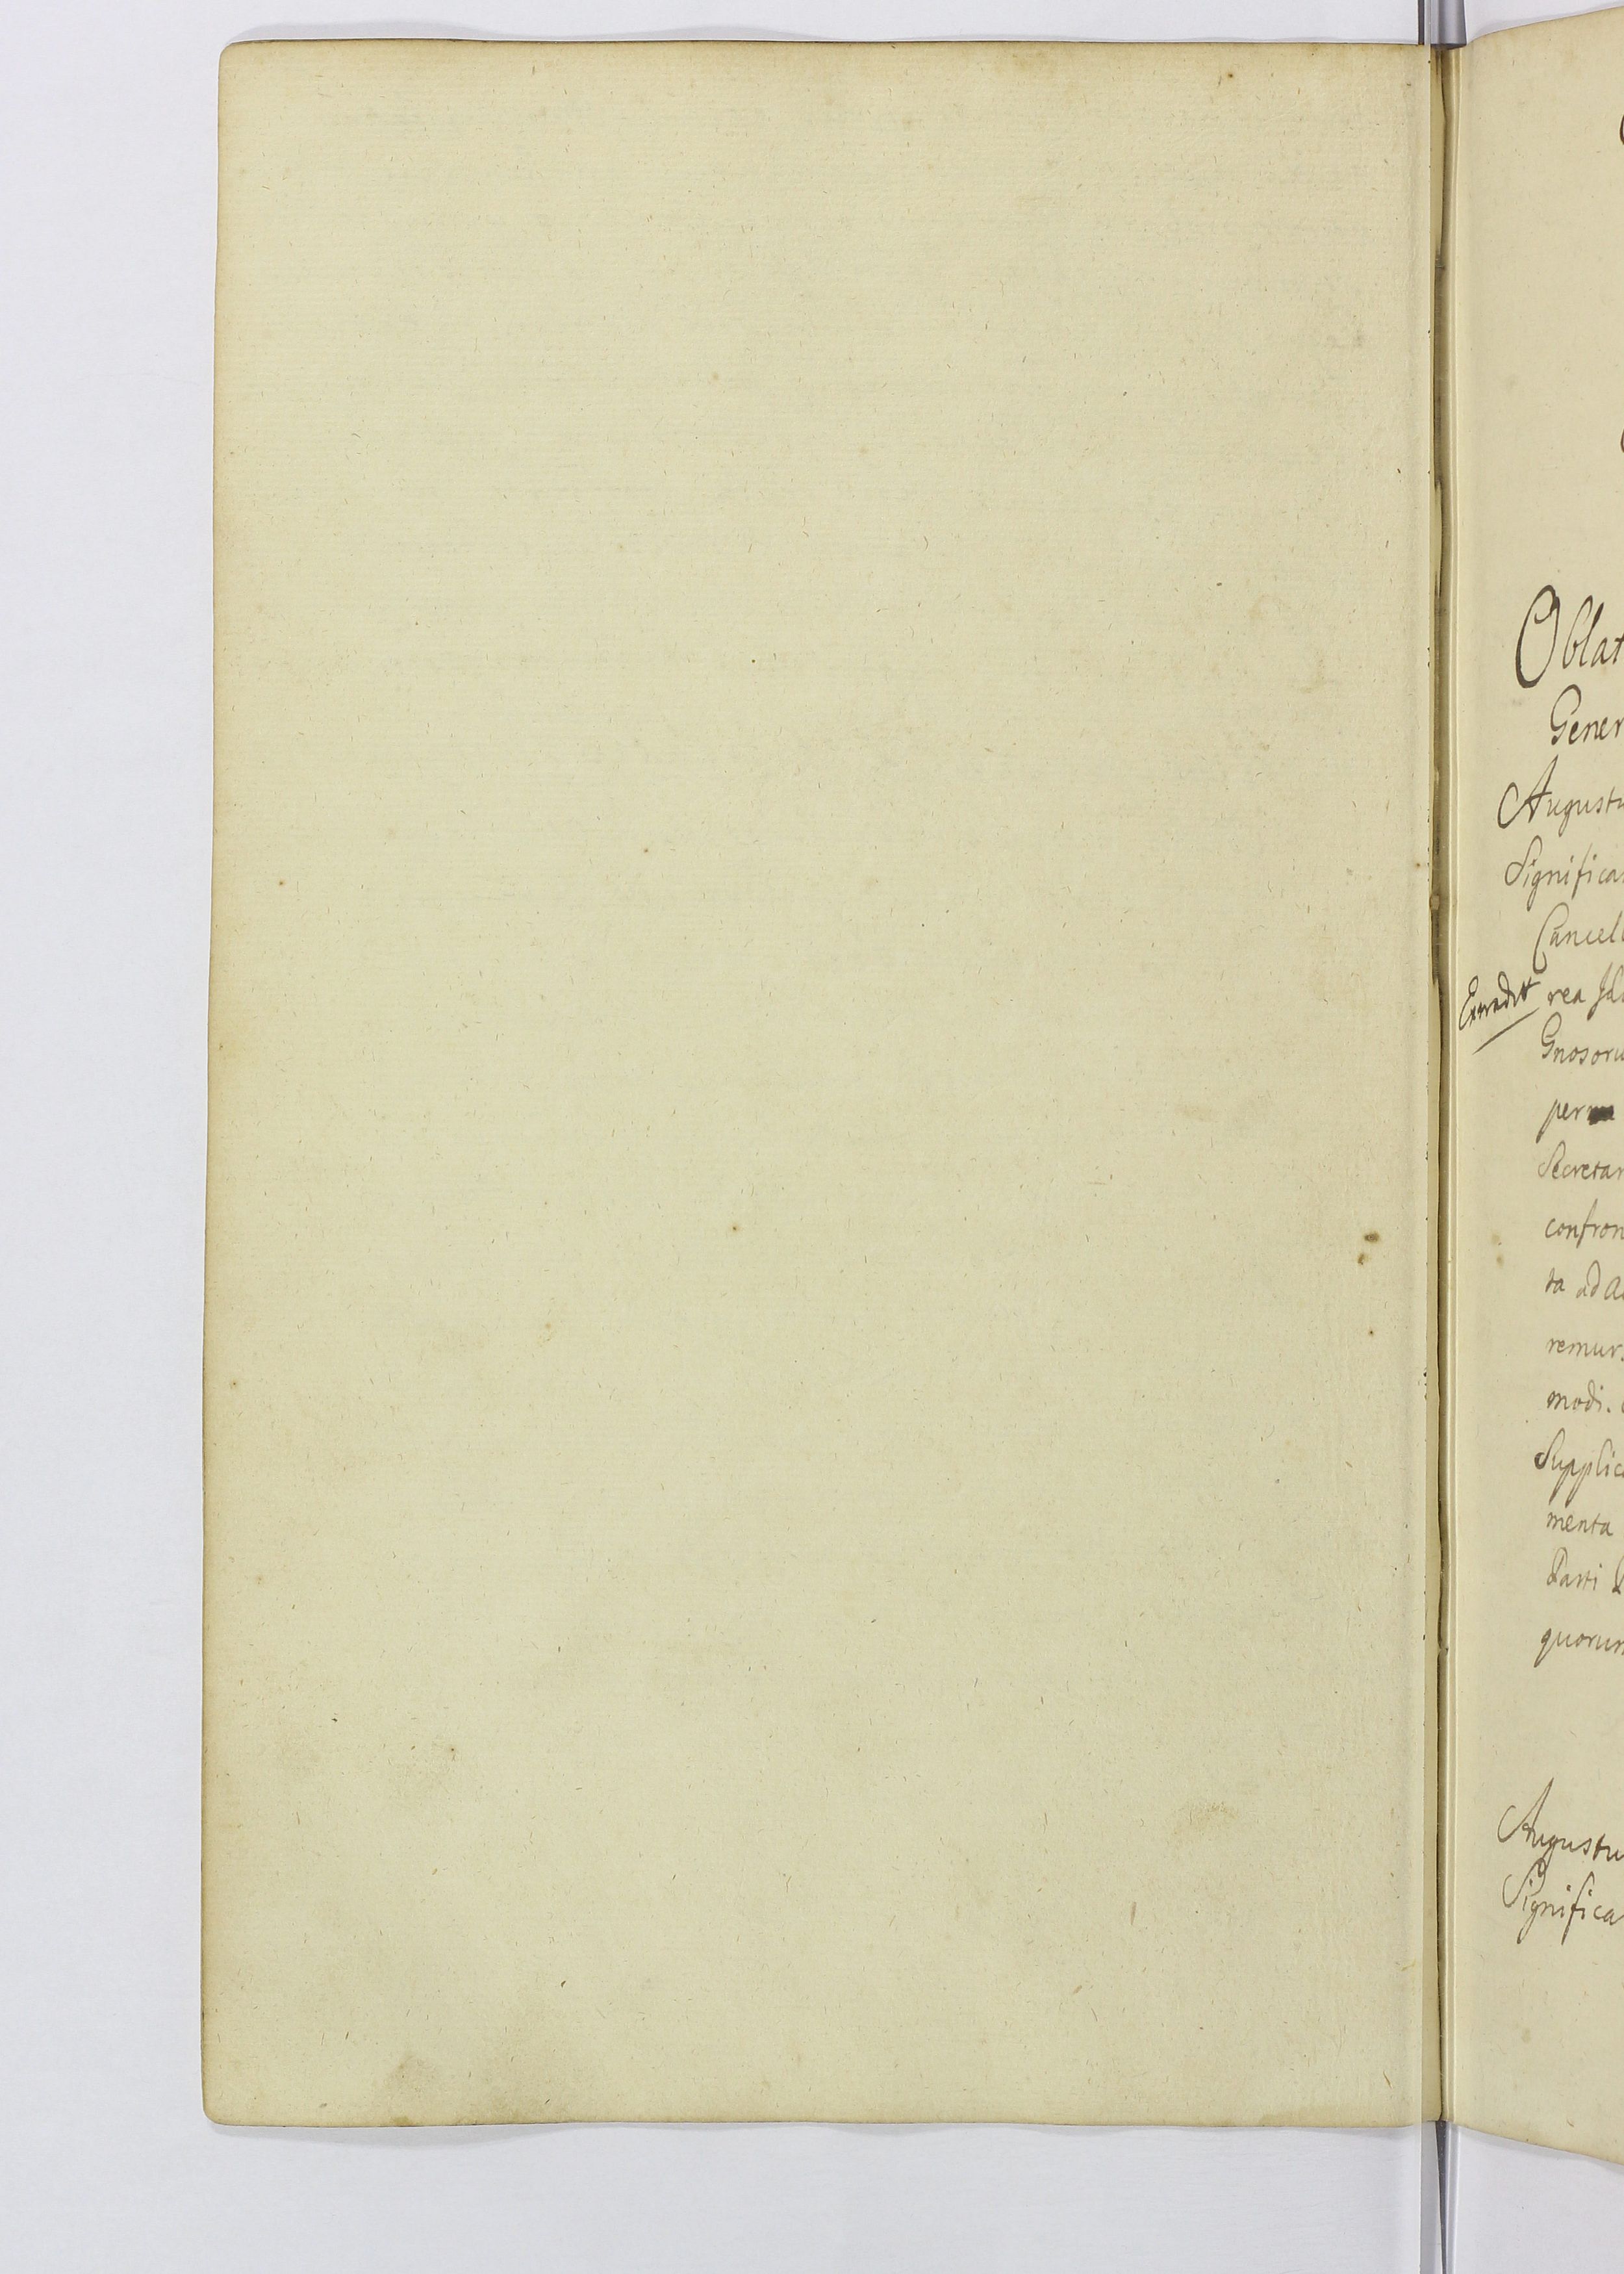 Oblat
Gener
Augustu
Significa
Cancell
Extradit
rea
Gnosoru
per
Secretar
confron
ta ad a
remur
modi.
Supplic
menta
Parti
quorum
Augustu
Significa